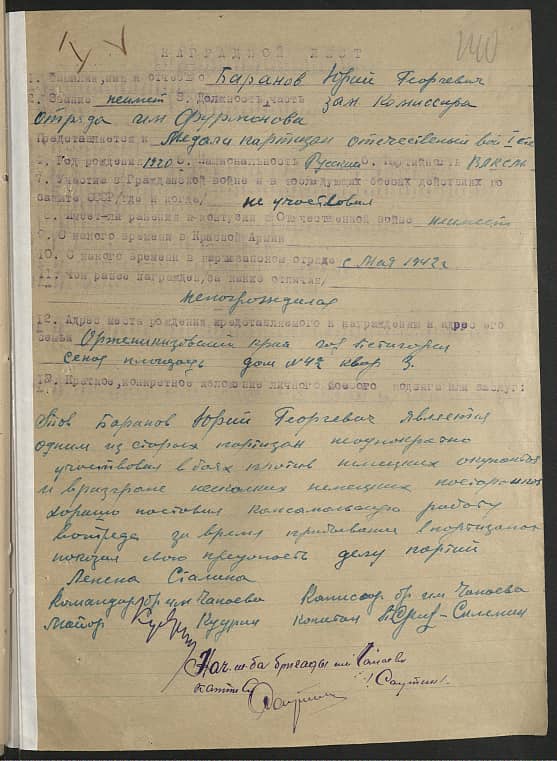 НАГРАДНОЙ ЛИСТ
1. Фамилия, имя и отчество Баранов Юрий Георгиевич
2. Звание неимеет 3. Должность, часть зам. комиссара
отряда им Фурманова
Представляется к Медали партизан отечественый вой I ст
4. Год рождения 1920 5. Национальность Русский 6. Партийность ВЛКСМ
7. Участие в Гражданской войне и в последующих боевых действиях по
защите СССР/где и когда/ не участвовал
8. Имеет-ли ранения и контузии в Отечественной войне неимеет
9. С какого времени в Красной Армии
10. С какого времени в партизанском отряде с мая 1942 г
11. Чем ранее награжден, за какие отличия/
ненограждался
12. Адрес места рождения, представляемого к награждению и адрес его
семьи Орженикизовский край гор
сеная площадь дом № 42 квар 3.
13. Краткое, конкретное изложение личного боевого подвига или заслуг:
Тов Баранов Юрий Георгевич является
одним из старых партизан неоднократно
участвовал в боях против немецких окупантов
и в разгроме несколких немецких
хорошо поставил комсомольскую работу
вотреде за время прибывания в портизанах
показал свою преданость делу партий
Ленена Сталина
Командор бр им. Чапаева Комиссар бр им. Чапаева
Майор Кудрин капитан
Нач. ш-ба бригады им Чапаева
капитан /Саутин/.